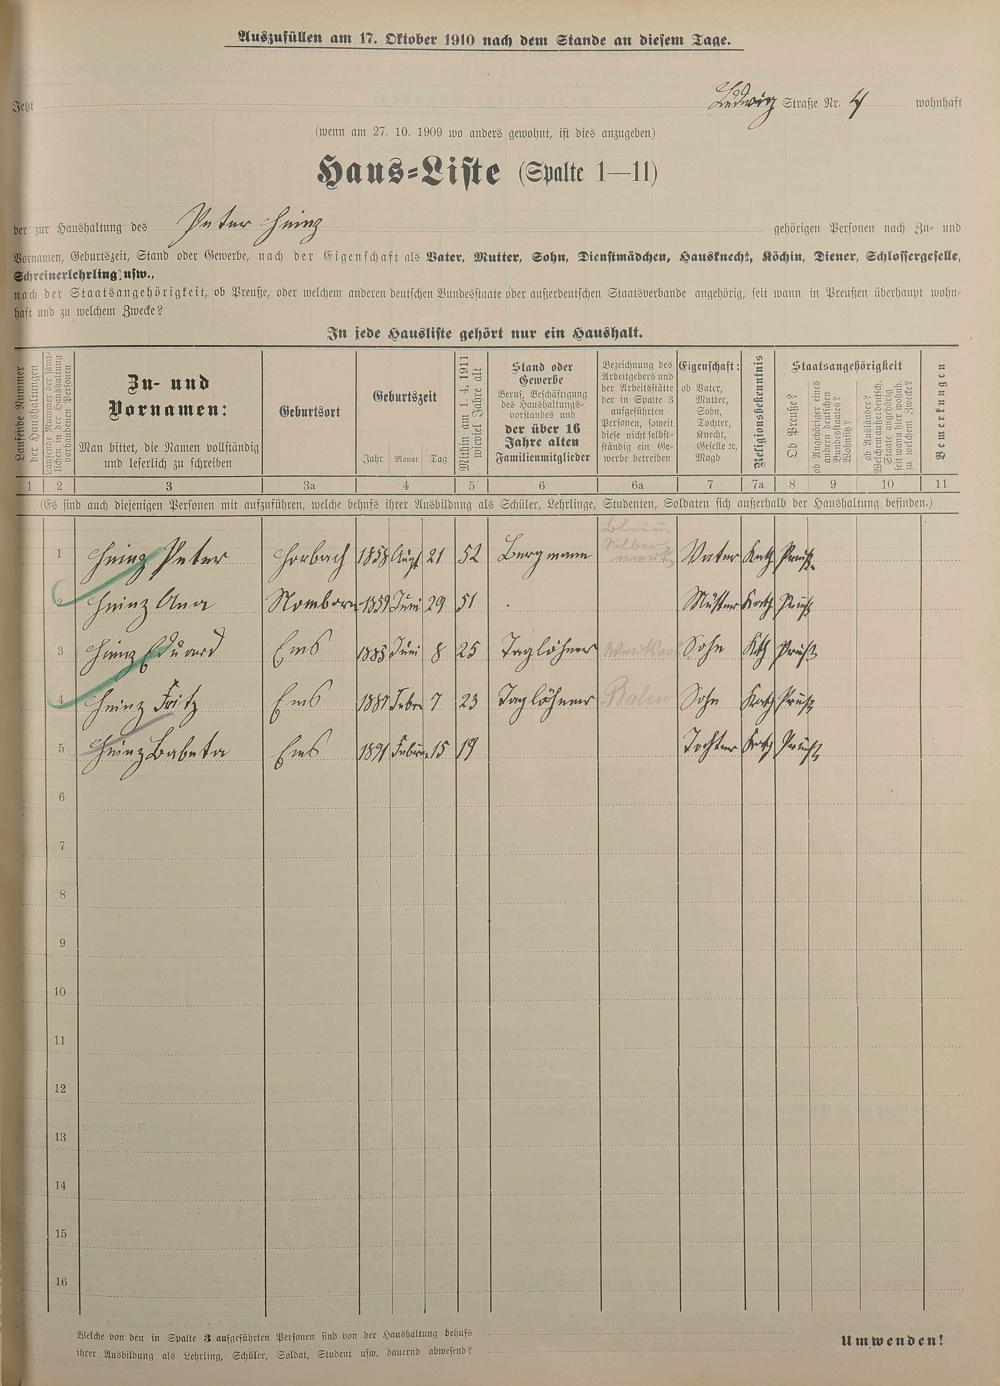 Auszufüllen am 17. Oktober 1910 nach dem Stande an diesem Tage.
Jetzt Ludwig Straße Nr. 4 wohnhaft
(wenn am 27. 10. 1909 wo anders gewohnt, ist dies anzugeben)
Haus-Liste (Spalte 1—11)
der zur Haushaltung des Peter Heinz gehörigen Personen nach Zu- und
Vornamen, Geburtszeit, Stand oder Gewerbe, nach der Eigenschaft als Vater, Mutter, Sohn, Dienstmädchen, Hausknecht, Köchin, Diener, Schlossergeselle,
Schreinerlehrling usw.,
nach der Staatsangehörigkeit, ob Preuße, oder welchem anderen deutschen Bundesstaate oder außerdeutschen Staatsverbande angehörig, seit wann in Preußen überhaupt wohn-
haft und zu welchem Zwecke?
In jede Hausliste gehört nur ein Haushalt.
Laufende Nummer
der Haushaltungen
Laufende Nummer der sämt-
lichen in der Haushaltung
vorhandenen Personen
Zu- und
Vornamen:
Man bittet, die Namen vollständig
und leserlich zu schreiben
Geburtsort
Geburtszeit
Jahr Monat Tag
Mithin am 1. 4. 1911
wieviel Jahre alt
Stand oder
Gewerbe
Beruf, Beschäftigung
des Haushaltungs-
vorstandes und
der über 16
Jahre alten
Familienmitglieder
Bezeichnung des
Arbeitgebers und
der Arbeitsstätte
der in Spalte 3
aufgeführten
Personen, soweit
diese nicht selbst-
ständig ein Ge-
werbe betreiben
Eigenschaft:
ob Vater,
Mutter,
Sohn,
Tochter,
Knecht,
Geselle ꝛc,
Magd
Religionsbekenntnis
Staatsangehörigkeit
Ob Preuße?
ob Angehöriger eines
andern deutschen
Bundesstaates?
Wohnsitz?
ob Ausländer?
Welchem außerdeutsch.
Staate angehörig
seit wann hier wohnh.
zu welchem Zwecke?
Bemerkungen
1 2 3 3a 4 5 6 6a 7 7a 8 9 10 11
(Es sind auch diejenigen Personen mit aufzuführen, welche behufs ihrer Ausbildung als Schüler, Lehrlinge, Studenten, Soldaten sich außerhalb der Haushaltung befinden.)
1 Heinz Peter Horbach 1858 Augst 21 52 Bergmann Blei u. Silber Vater Kath Preuß.
2 Heinz Ana 1859 Juni 29 51 Mutter Kath Preuß
3 Heinz Eduard Ems 1885 Juni 8 25 Taglöhner Sohn Kth Preuß
4 Heinz Fritz Ems Febr 7 23 Taglöhner Bahn Sohn Kath Preuß
5 Heinz Babeta Ems 1891 Febru 15 19 Tochter Kath Preuß
6
7
8
9
10
11
12
13
14
15
16
Welche von den in Spalte 3 aufgeführten Personen sind von der Haushaltung behufs
ihrer Ausbildung als Lehrling, Schüler, Soldat, Student usw. dauernd abwesend?
Umwenden!